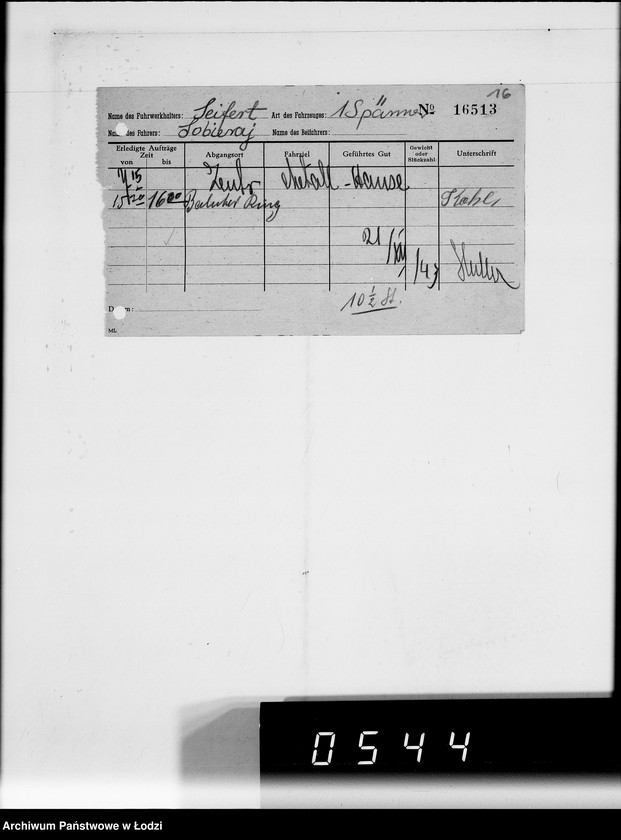 16
Name des Fuhrwerkhalters: Seifert Art des Fahrzeuges: 1 Spänner № 16513
Name des Fahrers: Sobieraj Name des Beifahrers:
Erledigte Aufträge
Zeit
von bis Abgangsort Fahrziel Geführtes Gut Gewicht oder Stückzahl Unterschrift
Metall - Hause
15 20 16 00 Ring
21/XII/43
10 ½ St.
ML
0544
Archiwum Państwowe w Łodzi